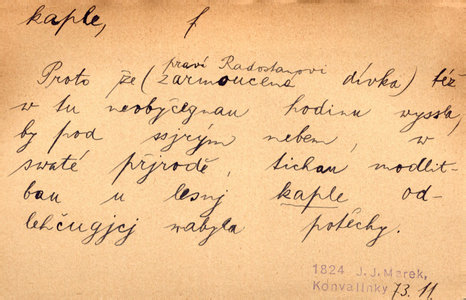 kaple, f
praví Radostanovi
Proto že (zarmoucená dívka) též
w tu neobyčegnau hodinu wyssla,
by pod ssjrým nebem, w
swaté přjrodě, tichau modlit-
bau u lesnj kaple od-
lehčugjcj nabyla potěchy.
1824 J. J. Marek,
Konvalinky 73. 11.